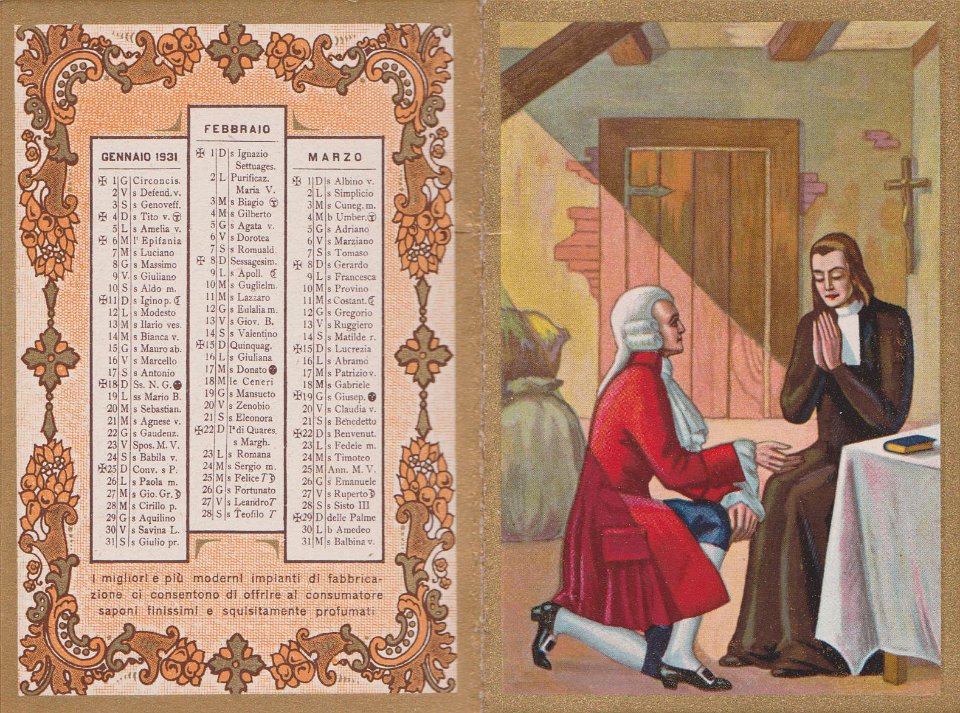 GENNAIO 1931
✠ 1 G Circoncis.
2 V s Defend. v.
3 S s Genoveff.
✠ 4 D s Tito v.
5 L s Amelia v.
✠ 6 M l' Epifania
7 M s Luciano
8 G s Massimo
9 V s Giuliano
10 S s Aldo m.
✠ 11 D s Igino p. ☾
12 L s Modesto
13 M s Ilario ves.
14 M s Bianca v.
15 G s Mauro ab.
16 V s Marcello
17 S s Antonio
✠ 18 D Ss. N. G.
19 L ss Mario B.
20 M s Sebastian.
21 M s Agnese v.
22 G s Gaudenz.
23 V Spos. M. V.
24 S s Babila v.
✠ 25 D Conv. s P.
26 L s Paola m.
27 M s Gio. Gr. ☽
28 M s Cirillo p.
29 G s Aquilino
30 V s Savina L.
31 S s Giulio pr.
FEBBRAIO
✠ 1 D s Ignazio
Settuages.
2 L Purificaz.
Maria V.
3 M s Biagio
4 M s Gilberto
5 G s Agata v.
6 V s Dorotea
7 S s Romuald.
✠ 8 D Sessagesim.
9 L s Apoll. ☾
10 M s Guglielm.
11 M s Lazzaro
12 G s Eulalia m.
13 V s Giov. B.
14 S s Valentino
✠ 15 D Quinquag.
16 L s Giuliana
17 M s Donato
18 M le Ceneri
19 G s Mansueto
20 V s Zenobio
21 S s Eleonora
✠ 22 D Iª di Quares.
s Margh.
23 L s Romana
24 M s Sergio m.
25 M s Felice T ☽
26 G s Fortunato
27 V s Leandro T
28 S s Teofilo T
MARZO
✠ 1 D s Albino v.
2 L s Simplicio
3 M s Cuneg. m.
4 M b Umber.
5 G s Adriano
6 V s Marziano
7 S s Tomaso
✠ 8 D s Gerardo
9 L s Francesca
10 M s Provino
11 M s Costant. ☾
12 G s Gregorio
13 V s Ruggiero
14 S s Matilde r.
✠ 15 D s Lucrezia
16 L s Abramo
17 M s Patrizio v.
18 M s Gabriele
✠ 19 G s Giusep.
20 V s Claudia v.
21 S s Benedetto
✠ 22 D s Benvenut.
23 L s Fedele m.
24 M s Timoteo
25 M Ann. M. V.
26 G s Emanuele
27 V s Ruperto ☽
28 S s Sisto III
✠ 29 D delle Palme
30 L b Amedeo
31 M s Balbina v.
I migliori e più moderni impianti di fabbrica-
zione ci consentono di offrire al consumatore
saponi finissimi e squisitamente profumati